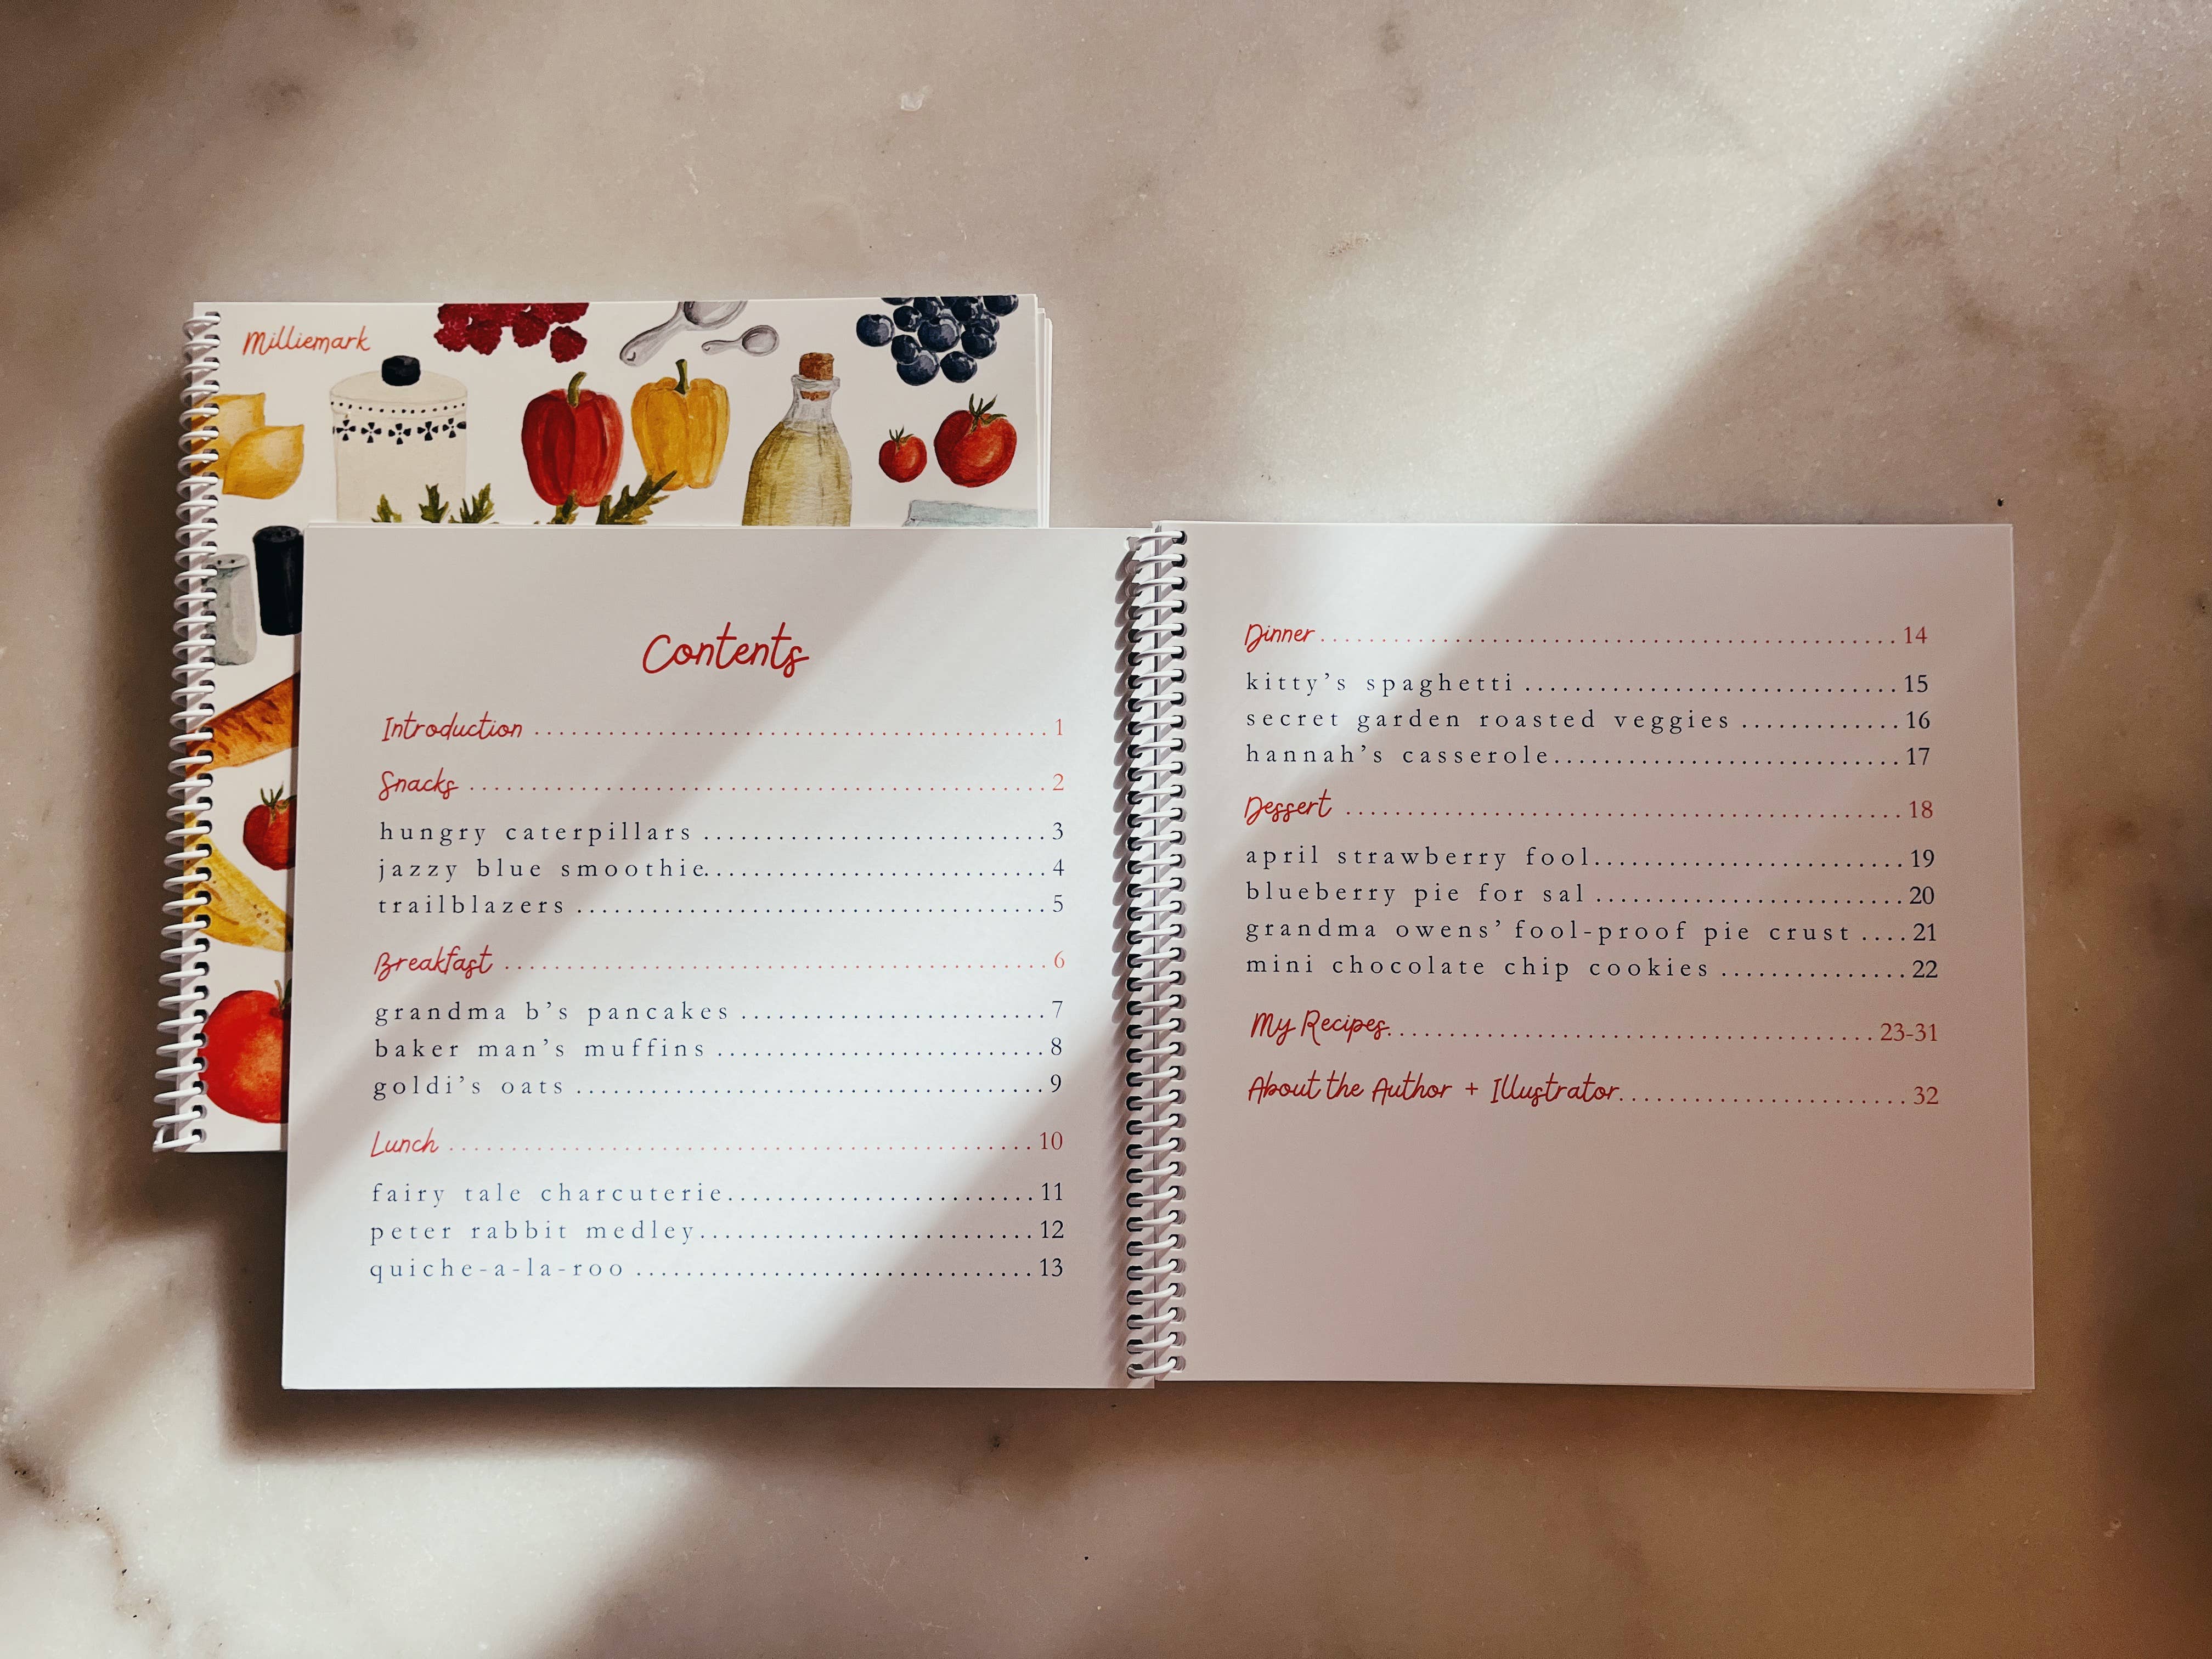 Milliemark
Contents
Introduction ................................................ 1
Snacks ...................................................... 2
hungry caterpillars .................................. 3
jazzy blue smoothie.................................. 4
trailblazers .............................................. 5
Breakfast .................................................. 6
grandma b's pancakes .............................. 7
baker man's muffins ................................ 8
goldi's oats .............................................. 9
Lunch ...................................................... 10
fairy tale charcuterie.............................. 11
peter rabbit medley................................ 12
quiche-a-la-roo ...................................... 13
Dinner ...................................................... 14
kitty's spaghetti .................................... 15
secret garden roasted veggies ............. 16
hannah's casserole................................ 17
Dessert .................................................... 18
april strawberry fool.............................. 19
blueberry pie for sal .............................. 20
grandma owens' fool-proof pie crust ....21
mini chocolate chip cookies .................. 22
My Recipes................................................ 23-31
About the Author + Illustrator............................ 32